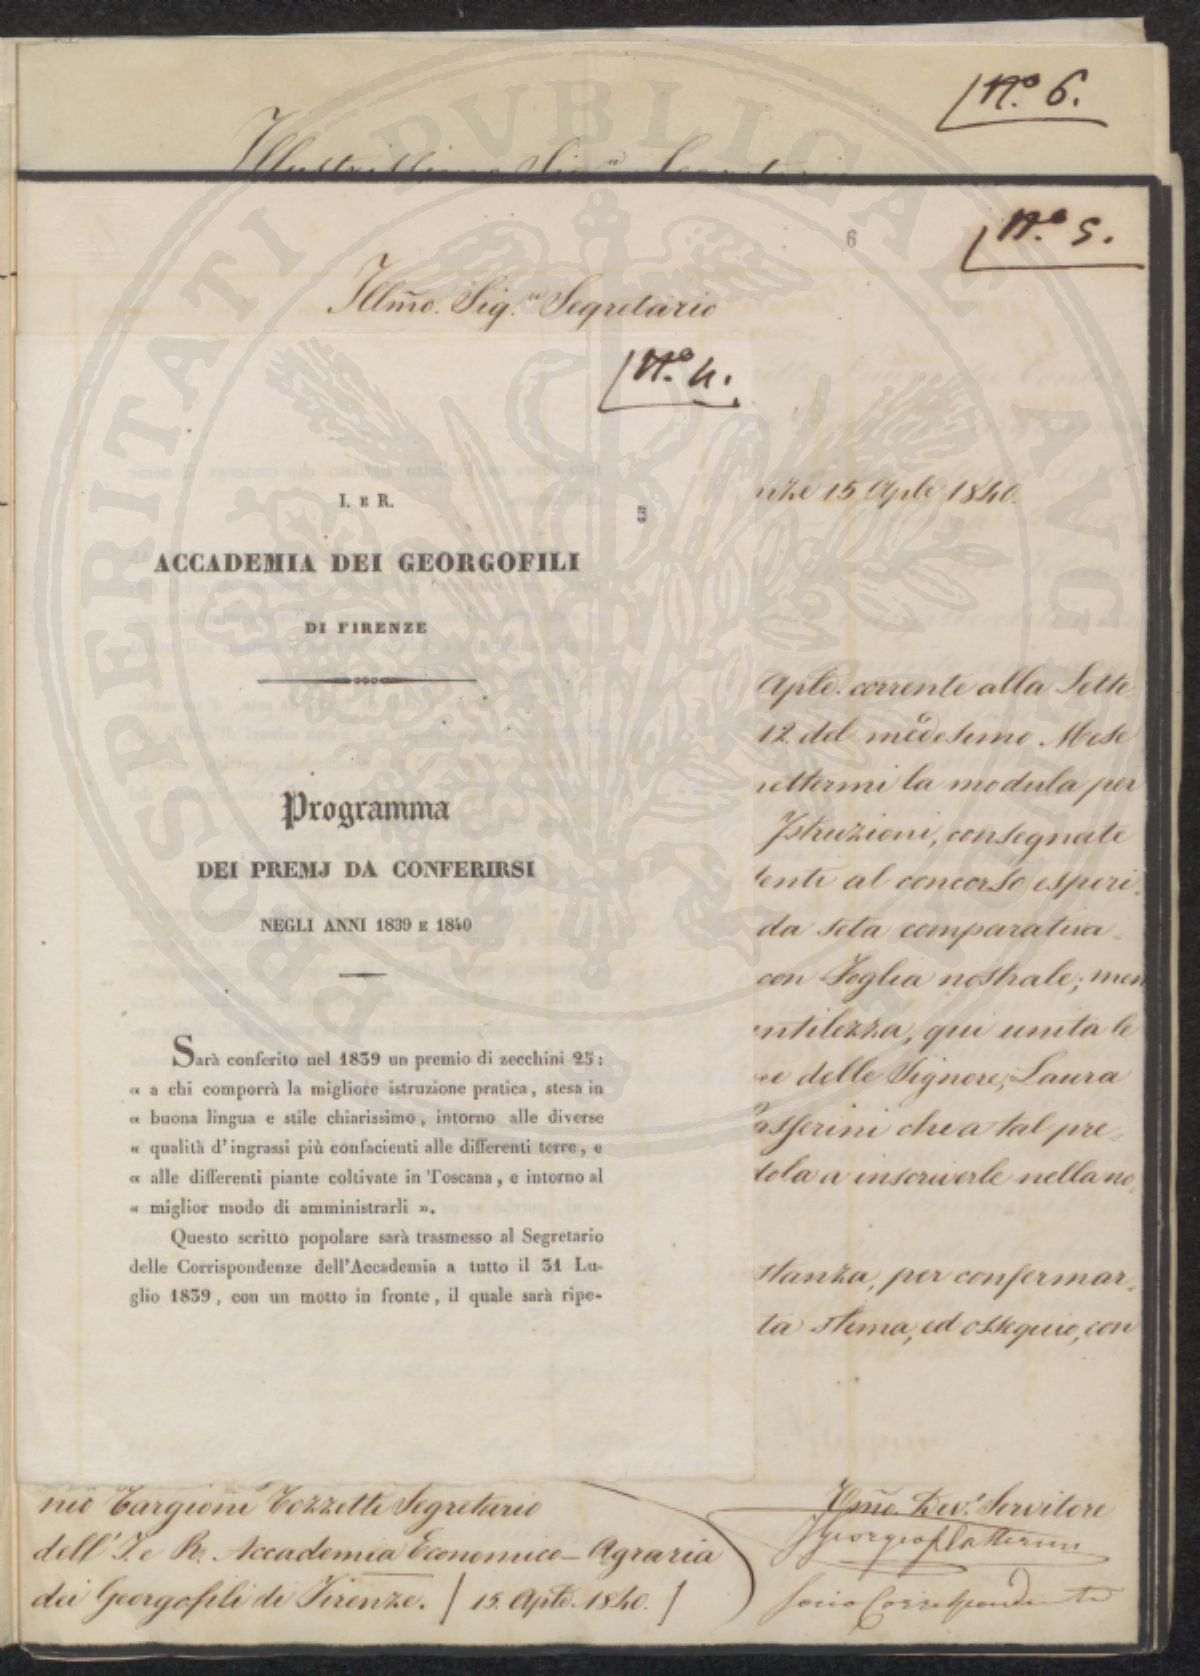 Nº 6.
Illustrissimo Sig.re Segretario
Nº 5.
6
Illmo. Sig.re Segretario
Nº 4.
I. E R.
3
ACCADEMIA DEI GEORGOFILI
DI FIRENZE
Programma
DEI PREMJ DA CONFERIRSI
NEGLI ANNI 1839 E 1840
Sarà conferito nel 1839 un premio di zecchini 25:
« a chi comporrà la migliore istruzione pratica, stesa in
« buona lingua e stile chiarissimo, intorno alle diverse
« qualità d'ingrassi più confacienti alle differenti terre, e
« alle differenti piante coltivate in Toscana, e intorno al
« miglior modo di amministrarli ».
Questo scritto popolare sarà trasmesso al Segretario
delle Corrispondenze dell'Accademia a tutto il 31 Lu-
glio 1839, con un motto in fronte, il quale sarà ripe-
nze 15 Aple 1840.
Aple. corrente alla Sette
12 del medesimo Mese
mettermi la modula per
Istruzioni, consegnate
enti al concorso esperi
da seta comparativa
con Foglia nostrale; men
entilezza, qui unita le
ne delle Signore, Laura
asserini che a tal pre
dola a inscriverle nella no
stanza, per confermar
ta stima, ed ossequio, con
nio Targioni Tozzetti Segretario
dell' I. e R. Accademia Economico-Agraria
dei Georgofili di Firenze. / 15. Aple. 1840. /
Umo. Dev. Servitore
Socio Corrispondente
PROSPERITATI PVBLICAE AVG